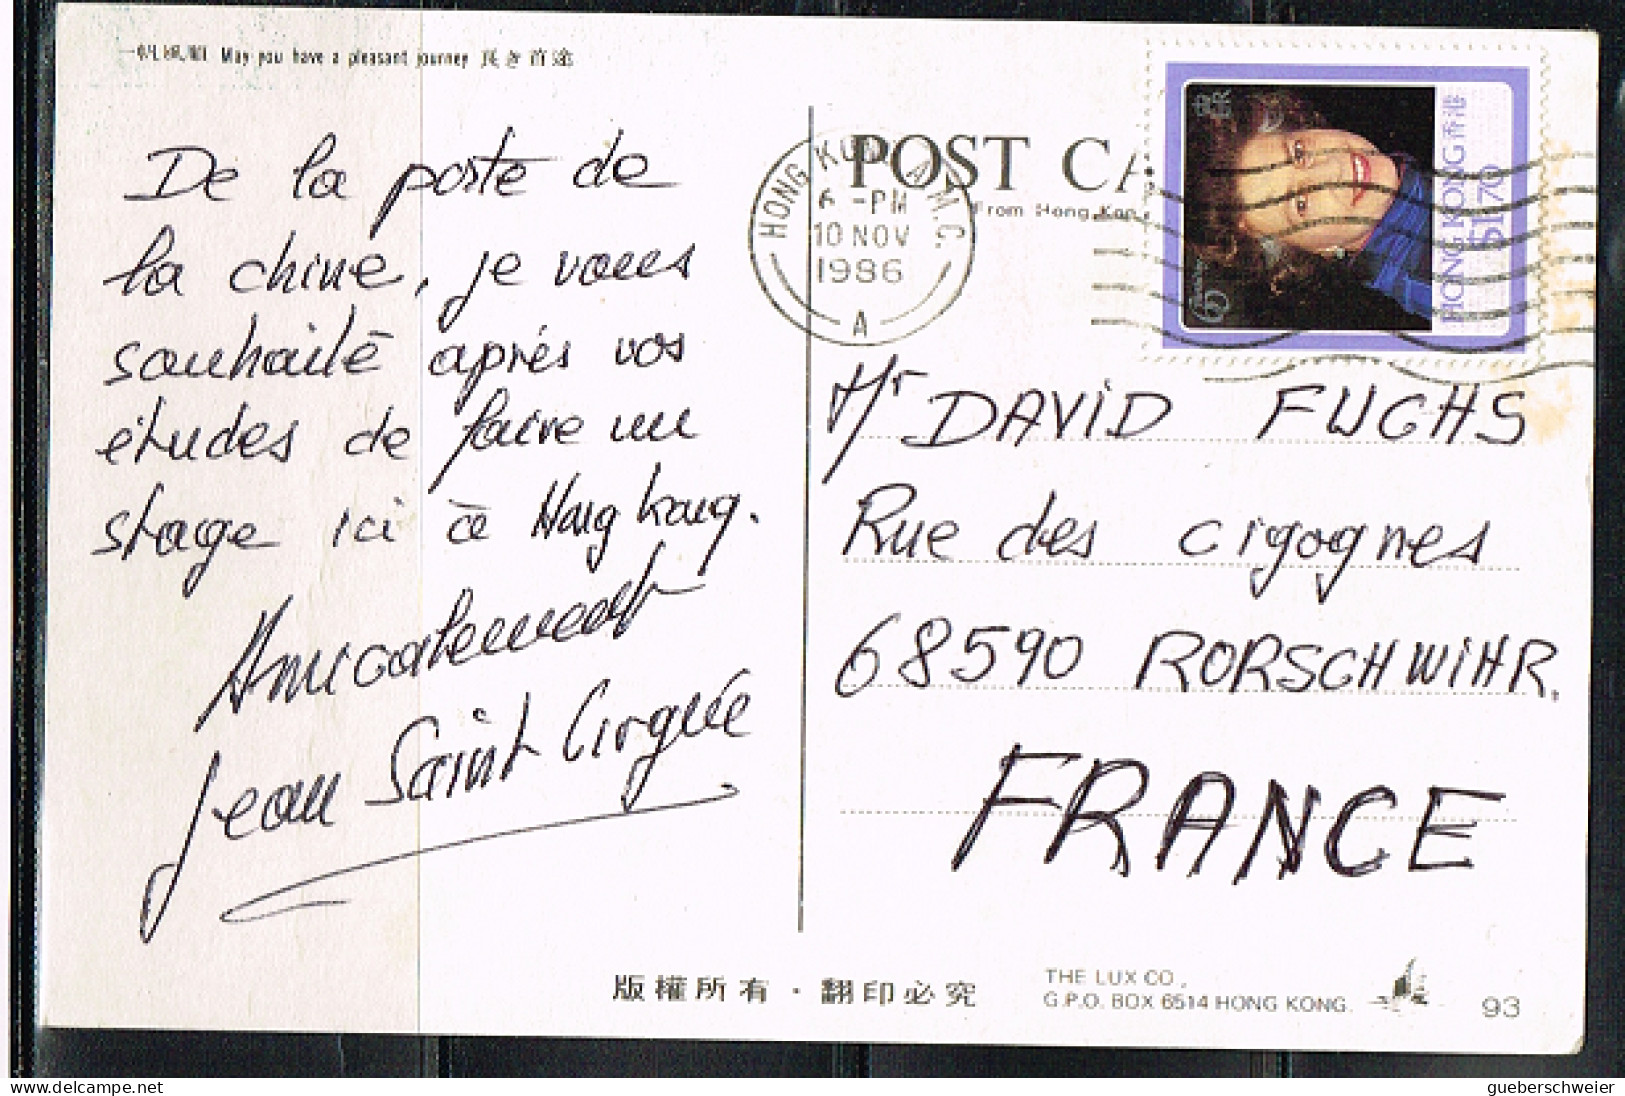 一帆風順 May you have a pleasant journey 良き前途
De la poste de
la chine, je vous
souhaite après vos
études de faire un
stage ici à Hong kong.
Amicalement
Jean Saint Cirguée
POST CA
From Hong Kon
HONG KONG
6 -PM
10 NOV
1986
A
HONG KONG 香港
$1.70
60
Mr DAVID FUCHS
Rue des cigognes
68590 RORSCHWIHR.
FRANCE
版權所有・翻印必究
THE LUX CO.,
G.P.O. BOX 6514 HONG KONG.
93
delcampe.net
gueberschweier